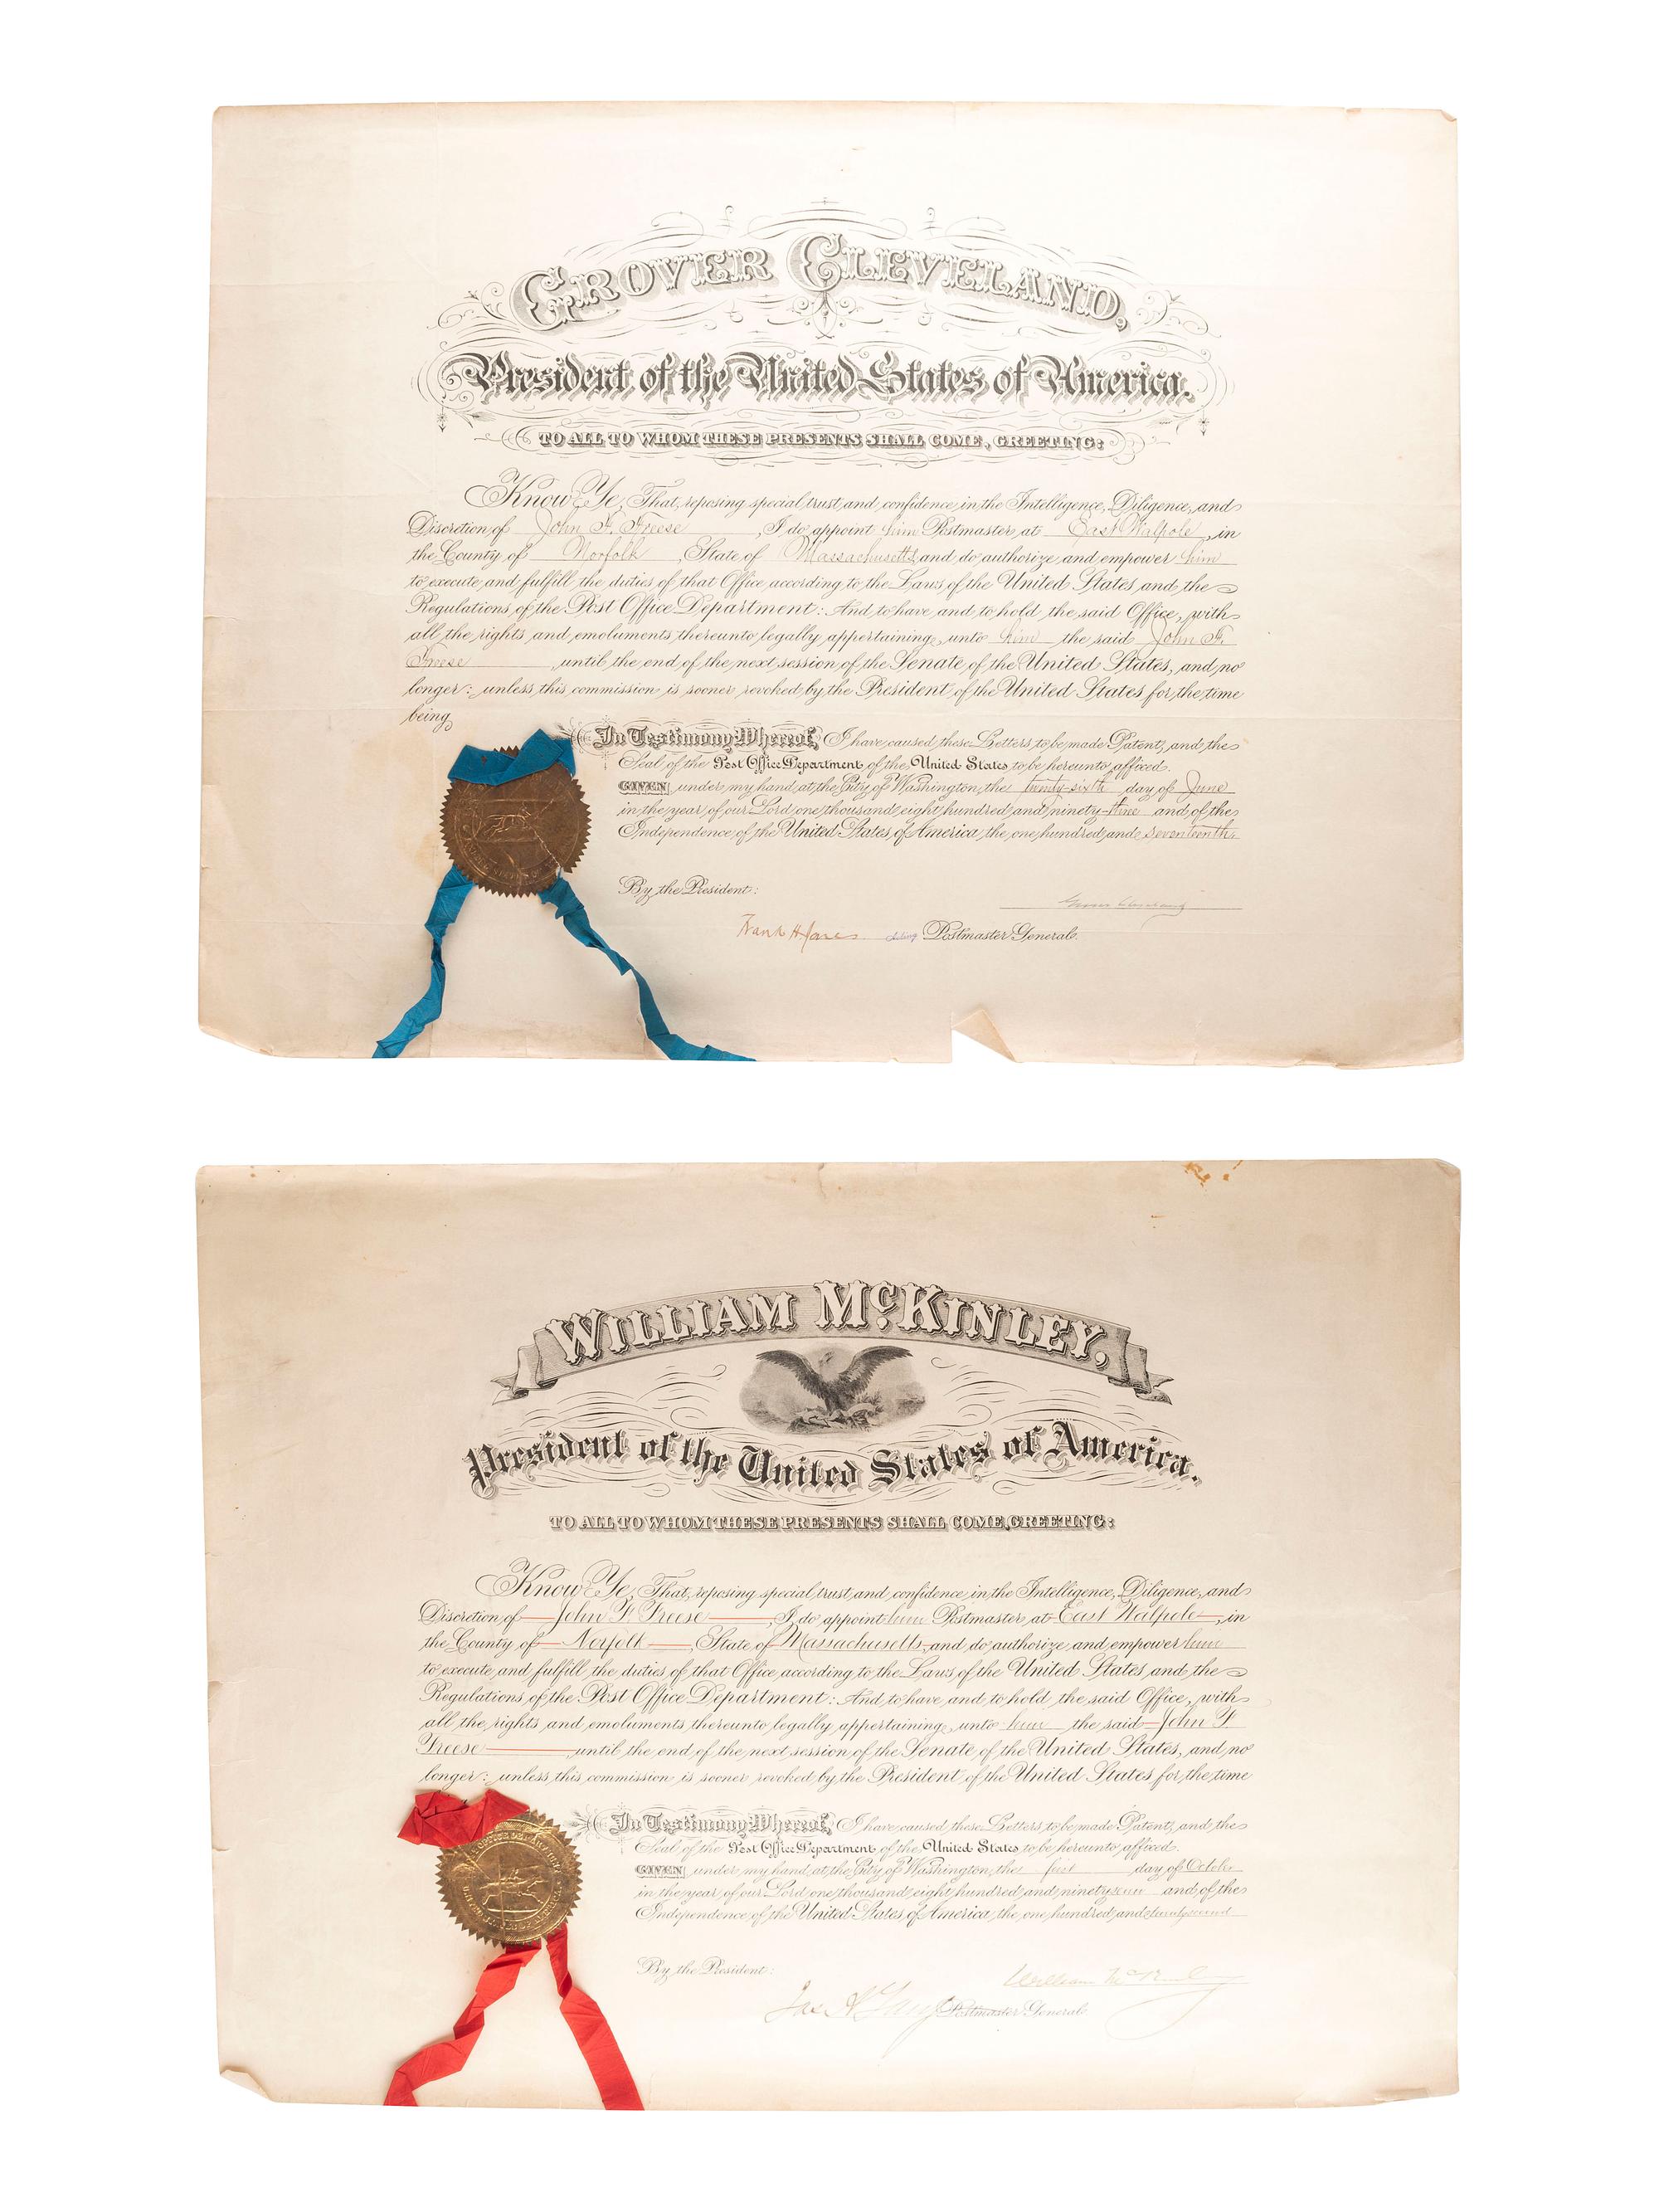 GROVER CLEVELAND,
President of the United States of America.
TO ALL TO WHOM THESE PRESENTS SHALL COME, GREETING:
Know Ye, That, reposing special trust and confidence in the Intelligence, Diligence, and
Discretion of John F. Freese, I do appoint him Postmaster at East Walpole, in
the County of Norfolk, State of Massachusetts and do authorize and empower him
to execute and fulfill the duties of that Office according to the Laws of the United States and the
Regulations of the Post Office Department: And to have and to hold the said Office, with
all the rights and emoluments thereunto legally appertaining, unto him the said John F.
Freese until the end of the next session of the Senate of the United States, and no
longer: unless this commission is sooner revoked by the President of the United States for the time
being.
In Testimony Whereof, I have caused these Letters to be made Patent, and the
Seal of the Post Office Department of the United States, to be hereunto affixed.
GIVEN under my hand, at the City of Washington, the twenty-sixth day of June
in the year of our Lord one thousand eight hundred and ninety-three and of the
Independence of the United States of America, the one hundred and seventeenth.
By the President:
Grover Cleveland
Frank H Jones Acting Postmaster General.
WILLIAM McKINLEY,
President of the United States of America.
TO ALL TO WHOM THESE PRESENTS SHALL COME, GREETING:
Know Ye, That, reposing special trust and confidence in the Intelligence, Diligence, and
Discretion of John F. Freese, I do appoint him Postmaster at East Walpole, in
the County of Norfolk, State of Massachusetts, and do authorize and empower him
to execute and fulfill the duties of that Office according to the Laws of the United States and the
Regulations of the Post Office Department: And to have and to hold the said Office, with
all the rights and emoluments thereunto legally appertaining, unto him the said John F.
Freese until the end of the next session of the Senate of the United States, and no
longer: unless this commission is sooner revoked by the President of the United States for the time
In Testimony Whereof, I have caused these Letters to be made Patent, and the
Seal of the Post Office Department of the United States, to be hereunto affixed.
GIVEN under my hand, at the City of Washington, the first day of October
in the year of our Lord one thousand eight hundred and ninety seven and of the
Independence of the United States of America, the one hundred and twenty second
By the President:
William McKinley
Jas A Gary Postmaster General.